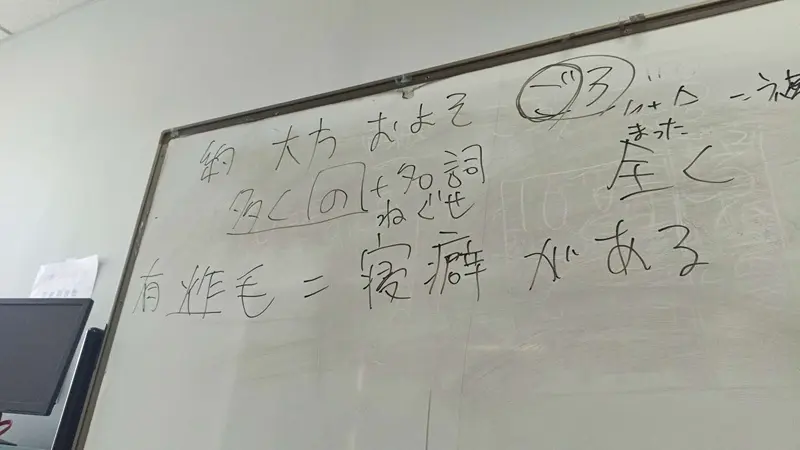 約 大方 およそ ごろ
まった
多く の + 名詞 全く
ねぐせ
有炸毛 = 寝癖 がある